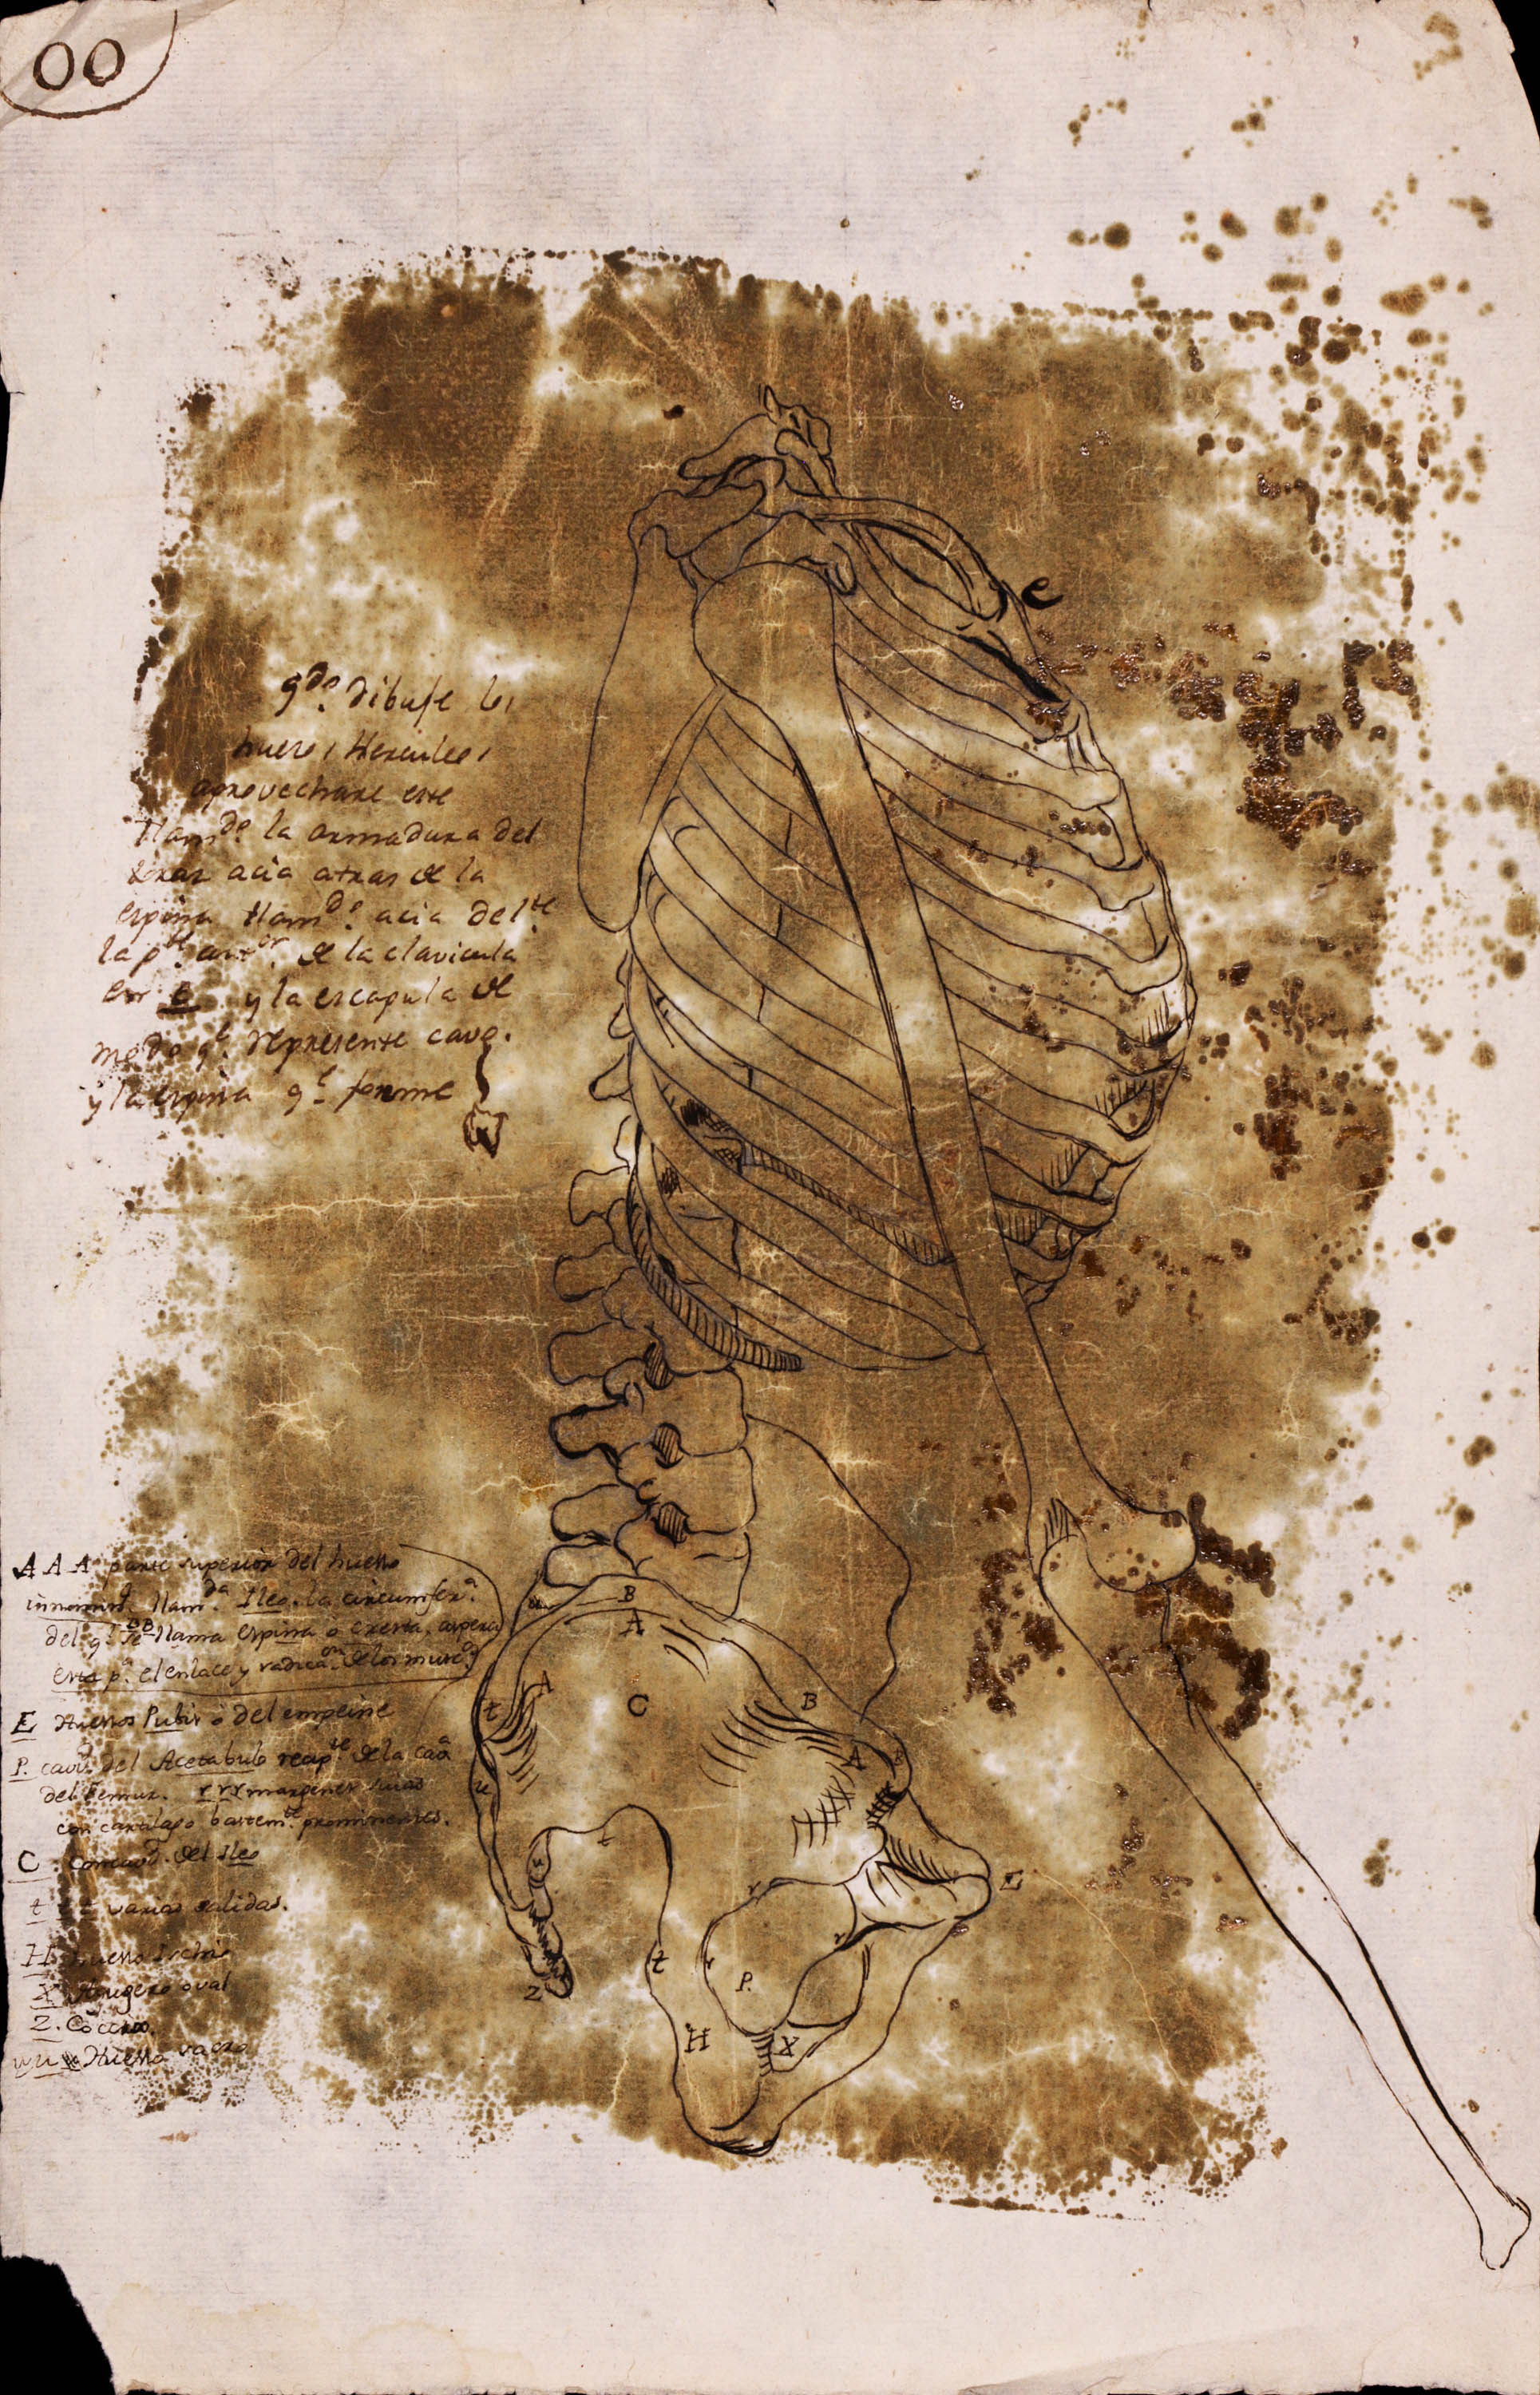 00
e
qdo. dibuje los
huesos Herculeos
aprovechare este
llamdo. la armadura del
torax acia atras de la
espina llamdo. acia delte.
la pte. antor. de la clavicula
en e y la escapula de
modo qe. represente cava.
y la espina qe. forme
AAA parte superior del hueso
innomindo. llamda. Ileo. la circumfera.
del ql. BB se llama espina o cresta, aspera
esta pa. el enlace y radicaon. de los musco.
E Huesos Pubis o del empeine
P. cavd. del Acetabulo recipte. de la caa.
del Femur. r r r margenes suias
con cartilago bastemte. prominentes.
C. Concavd. del Ileo
t t t varias salidas.
H. hueso Ischio
X Abugero oval
Z. Coccix.
uu Hueso sacro
B
A
A
t
C
B
A
B
u
t
u
r
E
t
r
r
P.
Z
H
X